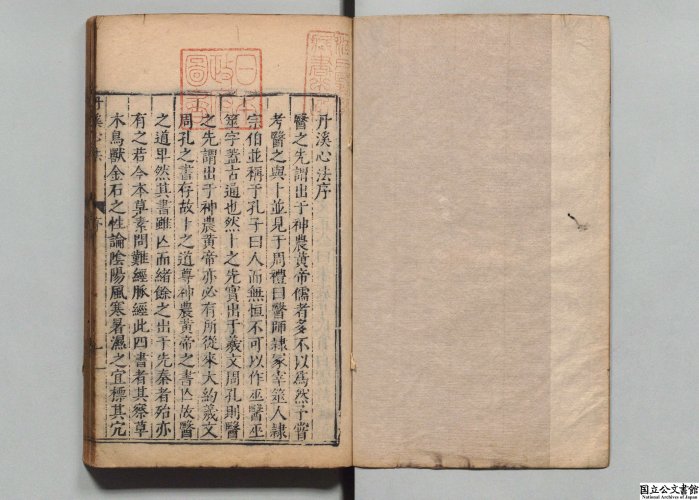 日本政府圖書
丹溪心法序
醫之先謂出于神農黃帝儒者多不以為然予嘗
考醫之與卜並見于周禮曰醫師隸冢宰筮人隸
宗伯並稱于孔子曰人而無恒不可以作巫醫巫
筮字蓋古通也然卜之先實出于羲文周孔則醫
之先謂出于神農黃帝亦必有所從來大約羲文
周孔之書存故卜之道尊神農黃帝之書亾故醫
之道卑然其書雖亾而緒餘之出于先秦者殆亦
有之若今本草素問難經脈經此四書者其察草
木鳥獸金石之性論陰陽風寒暑濕之宜標其穴
丹溪心法 序
国立公文書館
National Archives of Japan